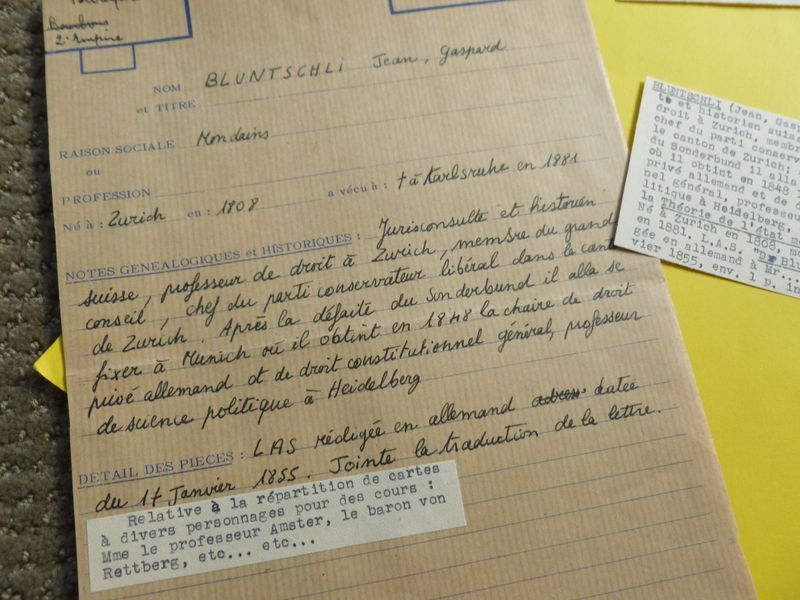 Bourbons
2e Empire
NOM BLUNTSCHLI Jean, Gaspard
et TITRE
RAISON SOCIALE Mondains
ou
PROFESSION
Né à : Zurich en : 1808 a vécu à : † à Karlsruhe en 1881
NOTES GENEALOGIQUES et HISTORIQUES : Jurisconsulte et historien
suisse, professeur de droit à Zurich, membre du grand
conseil, chef du parti conservateur libéral dans le canton
de Zurich. Après la défaite du Sonderbund il alla se
fixer à Munich où il obtint en 1848 la chaire de droit
privé allemand et de droit constitutionnel général, professeur
de science politique à Heidelberg
DETAIL DES PIECES : LAS rédigée en allemand datée
du 17 Janvier 1855. Jointe la traduction de la lettre.
Relative à la répartition de cartes
à divers personnages pour des cours :
Mme le professeur Amster, le baron von
Rettberg, etc... etc...
BLUNTSCHLI (Jean, Gas
te et historien suis
droit à Zurich, memb
chef du parti conser
le canton de Zurich;
du Sonderbund il alla
où il obtint en 1848
privé allemand et de
nel général, professe
litique à Heidelberg,
la Théorie de l'état
Né à Zurich en 1808, mo
en 1881, L.A.S.
gée en allemand à Mr.
vier 1855, env. 1 p. in